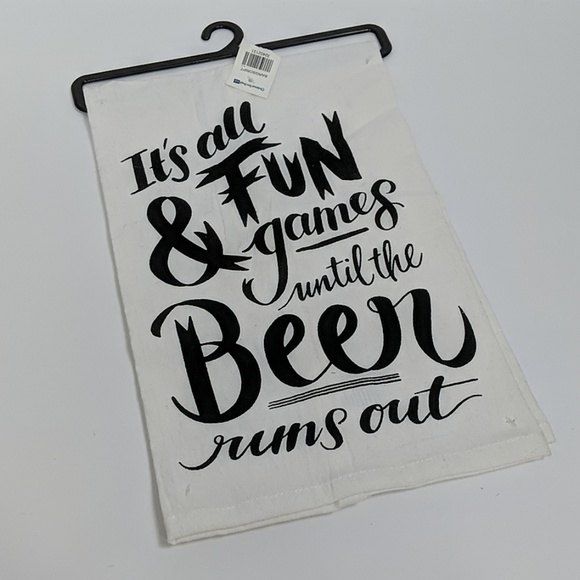 It's all
FUN
& games
until the
Beer
runs out